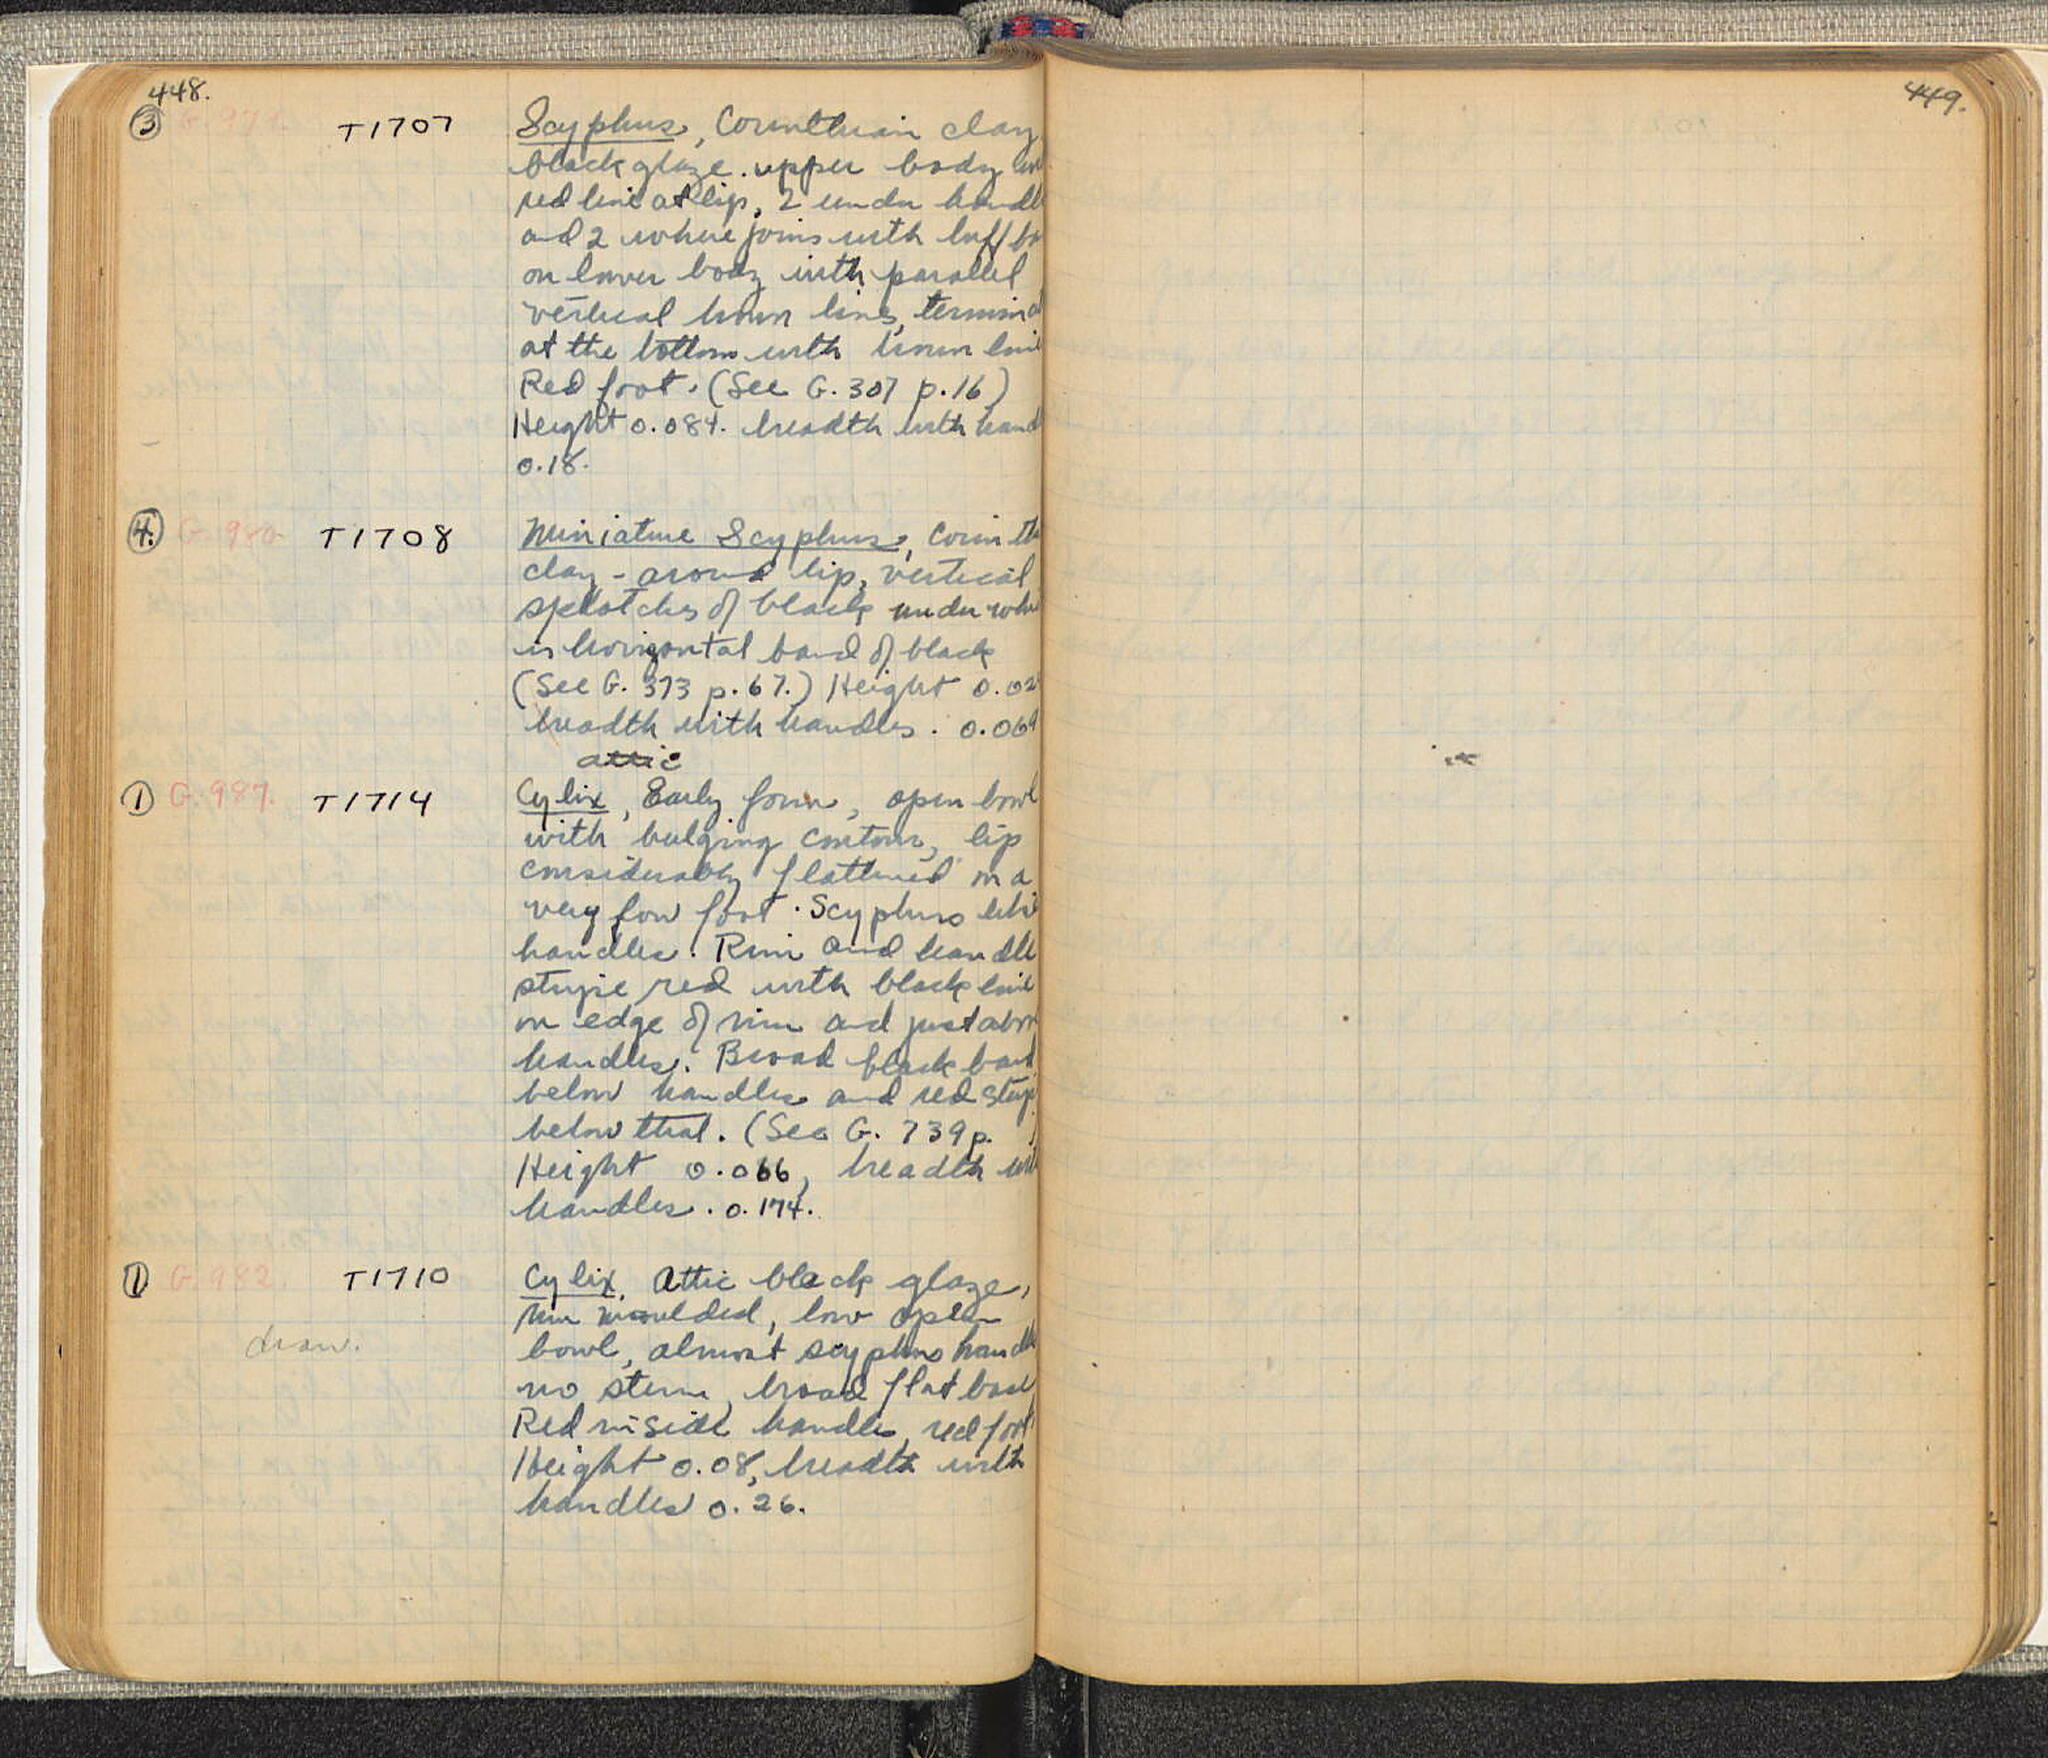 448.
③ G. 971. T1707 Scyphus, Corinthian clay
black glaze. upper body
red line at lip, 2 under handl
and 2 where joins with buff
on lower body with parallel
vertical brown lines, terminat
at the bottom with brown line
Red foot. (See G. 307 p.16)
Height 0.084. breadth with hand
0.18.
④ G. 980. T1708 Miniature Scyphus, Corinth
clay - around lip, vertical
splotches of black under whi
is horizontal band of black
(See G. 373 p.67.) Height 0.02
breadth with handles. 0.069
attic
① G. 987. T1714 Cylix, Early form, open bowl
with bulging contour, lip
considerably flattened on a
very low foot. Scyphus like
handles. Rim and handle
stripe red with black line
on edge of rim and just above
handles. Broad black band
below handles and red stripe
below that. (See G. 739 p.
Height 0.066, breadth with
handles. 0.174.
① G. 982. T1710 Cylix, Attic black glaze,
rim moulded, low open
draw. bowl, almost scyphus handle
no stem, broad flat base
Red inside handles, red foot
Height 0.08, breadth with
handles 0.26.
449.